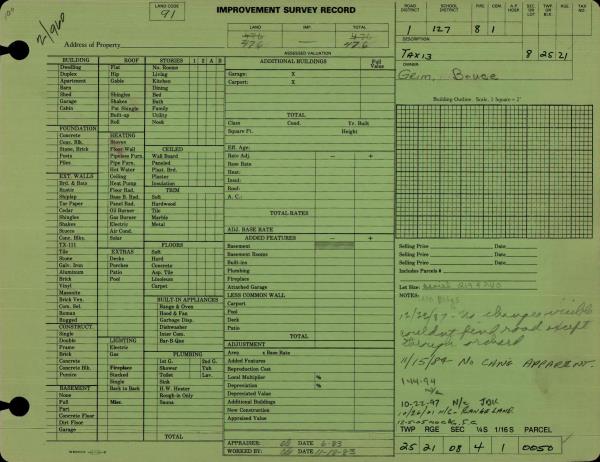 IMPROVEMENT SURVEY RECORD
LAND CODE
91
ROAD DISTRICT
SCHOOL DISTRICT
127
8
1
2/960
Address of Property
LAND
IMP.
TOTAL
476
476
476
476
ASSESSED VALUATION
DESCRIPTION
TAX 13
8 25 21
OWNER
Grim, Bruce
BUILDING
Dwelling
Duplex
Apartment
Barn
Shed
Garage
Cabin
ROOF
Flat
Hip
Gable
Shingles
Shakes
Pat Shingle
Built-up
Roll
STORIES 1 2 A B
No. Rooms
Living
Kitchen
Dining
Bed
Bath
Family
Utility
Nook
ADDITIONAL BUILDINGS
Full Value
Garage: X
Carport: X
TOTAL
Class Cond. Yr. Built
Square Ft. Height
FOUNDATION
Concrete
Conc. Blk.
Stone, Brick
Posts
Piles
HEATING
Stoves
Floor Wall
Pipeless Furn.
Pipe Furn.
Hot Water
Ceiling
Heat Pump
Floor Rad.
Base B. Rad.
Panel Rad.
Oil Burner
Gas Burner
Electric
Air Cond.
Solar
CEILED
Wall Board
Paneled
Plast. Brd.
Plaster
Insulation
EXT. WALLS
Brd. & Bats
Rustic
Shiplap
Tar Paper
Cedar
Shingles
Shakes
Stucco
Conc. Blks.
TX-111
Tile
Stone
Galv. Iron
Aluminum
Brick
Vinyl
Masonite
Brick Ven.
Com. Sel.
Roman
Rugged
TRIM
Soft
Hardwood
Tile
Marble
Metal
FLOORS
Soft
Hard
Concrete
Asp. Tile
Linoleum
Carpet
EXTRAS
Decks
Porches
Patio
Pool
BUILT-IN APPLIANCES
Range & Oven
Hood & Fan
Garbage Disp.
Dishwasher
Inter Com.
Bar-B-Que
CONSTRUCT.
Single
Double
Frame
Brick
Concrete
Concrete Blk.
Pumice
LIGHTING
Electric
Gas
Fireplace
Stacked
Single
Back to Back
Misc.
PLUMBING
1st G. 2nd G.
Shower Tub
Toilet Lav.
Sink
H.W. Heater
Rough-in Only
Sauna
BASEMENT
None
Full
Part
Concrete Floor
Dirt Floor
Garage
TOTAL
Eff. Age:
Rate Adj. – +
Base Rate
Heat:
Insul:
Roof:
A. C.:
TOTAL RATES
ADJ. BASE RATE
ADDED FEATURES – +
Basement
Basement Rooms
Built-ins
Plumbing
Fireplace
Attached Garage
LESS COMMON WALL
Carport
Pool
Deck
Patio
TOTAL
ADJUSTMENT
Area x Base Rate
Added Features
Reproduction Cost
Local Multiplier %
Depreciation %
Depreciated Value
Additional Buildings
New Construction
Appraised Value
APPRAISER: DATE 6-83
WORKED BY: DATE 11-18-83
Building Outline Scale, 1 Square = 2'
Selling Price Date
Selling Price Date
Selling Price Date
Includes Parcels #
Lot Size:
NOTES: No Bldgs
12/22/87 - No changes visible
couldn't find road except
11/15/89 - No CANG APPARENT.
1-44-94
N/C
10-22-97 N/C JOU
TWP RGE SEC ¼S 1/16S PARCEL
25 21 08 4 1 0050